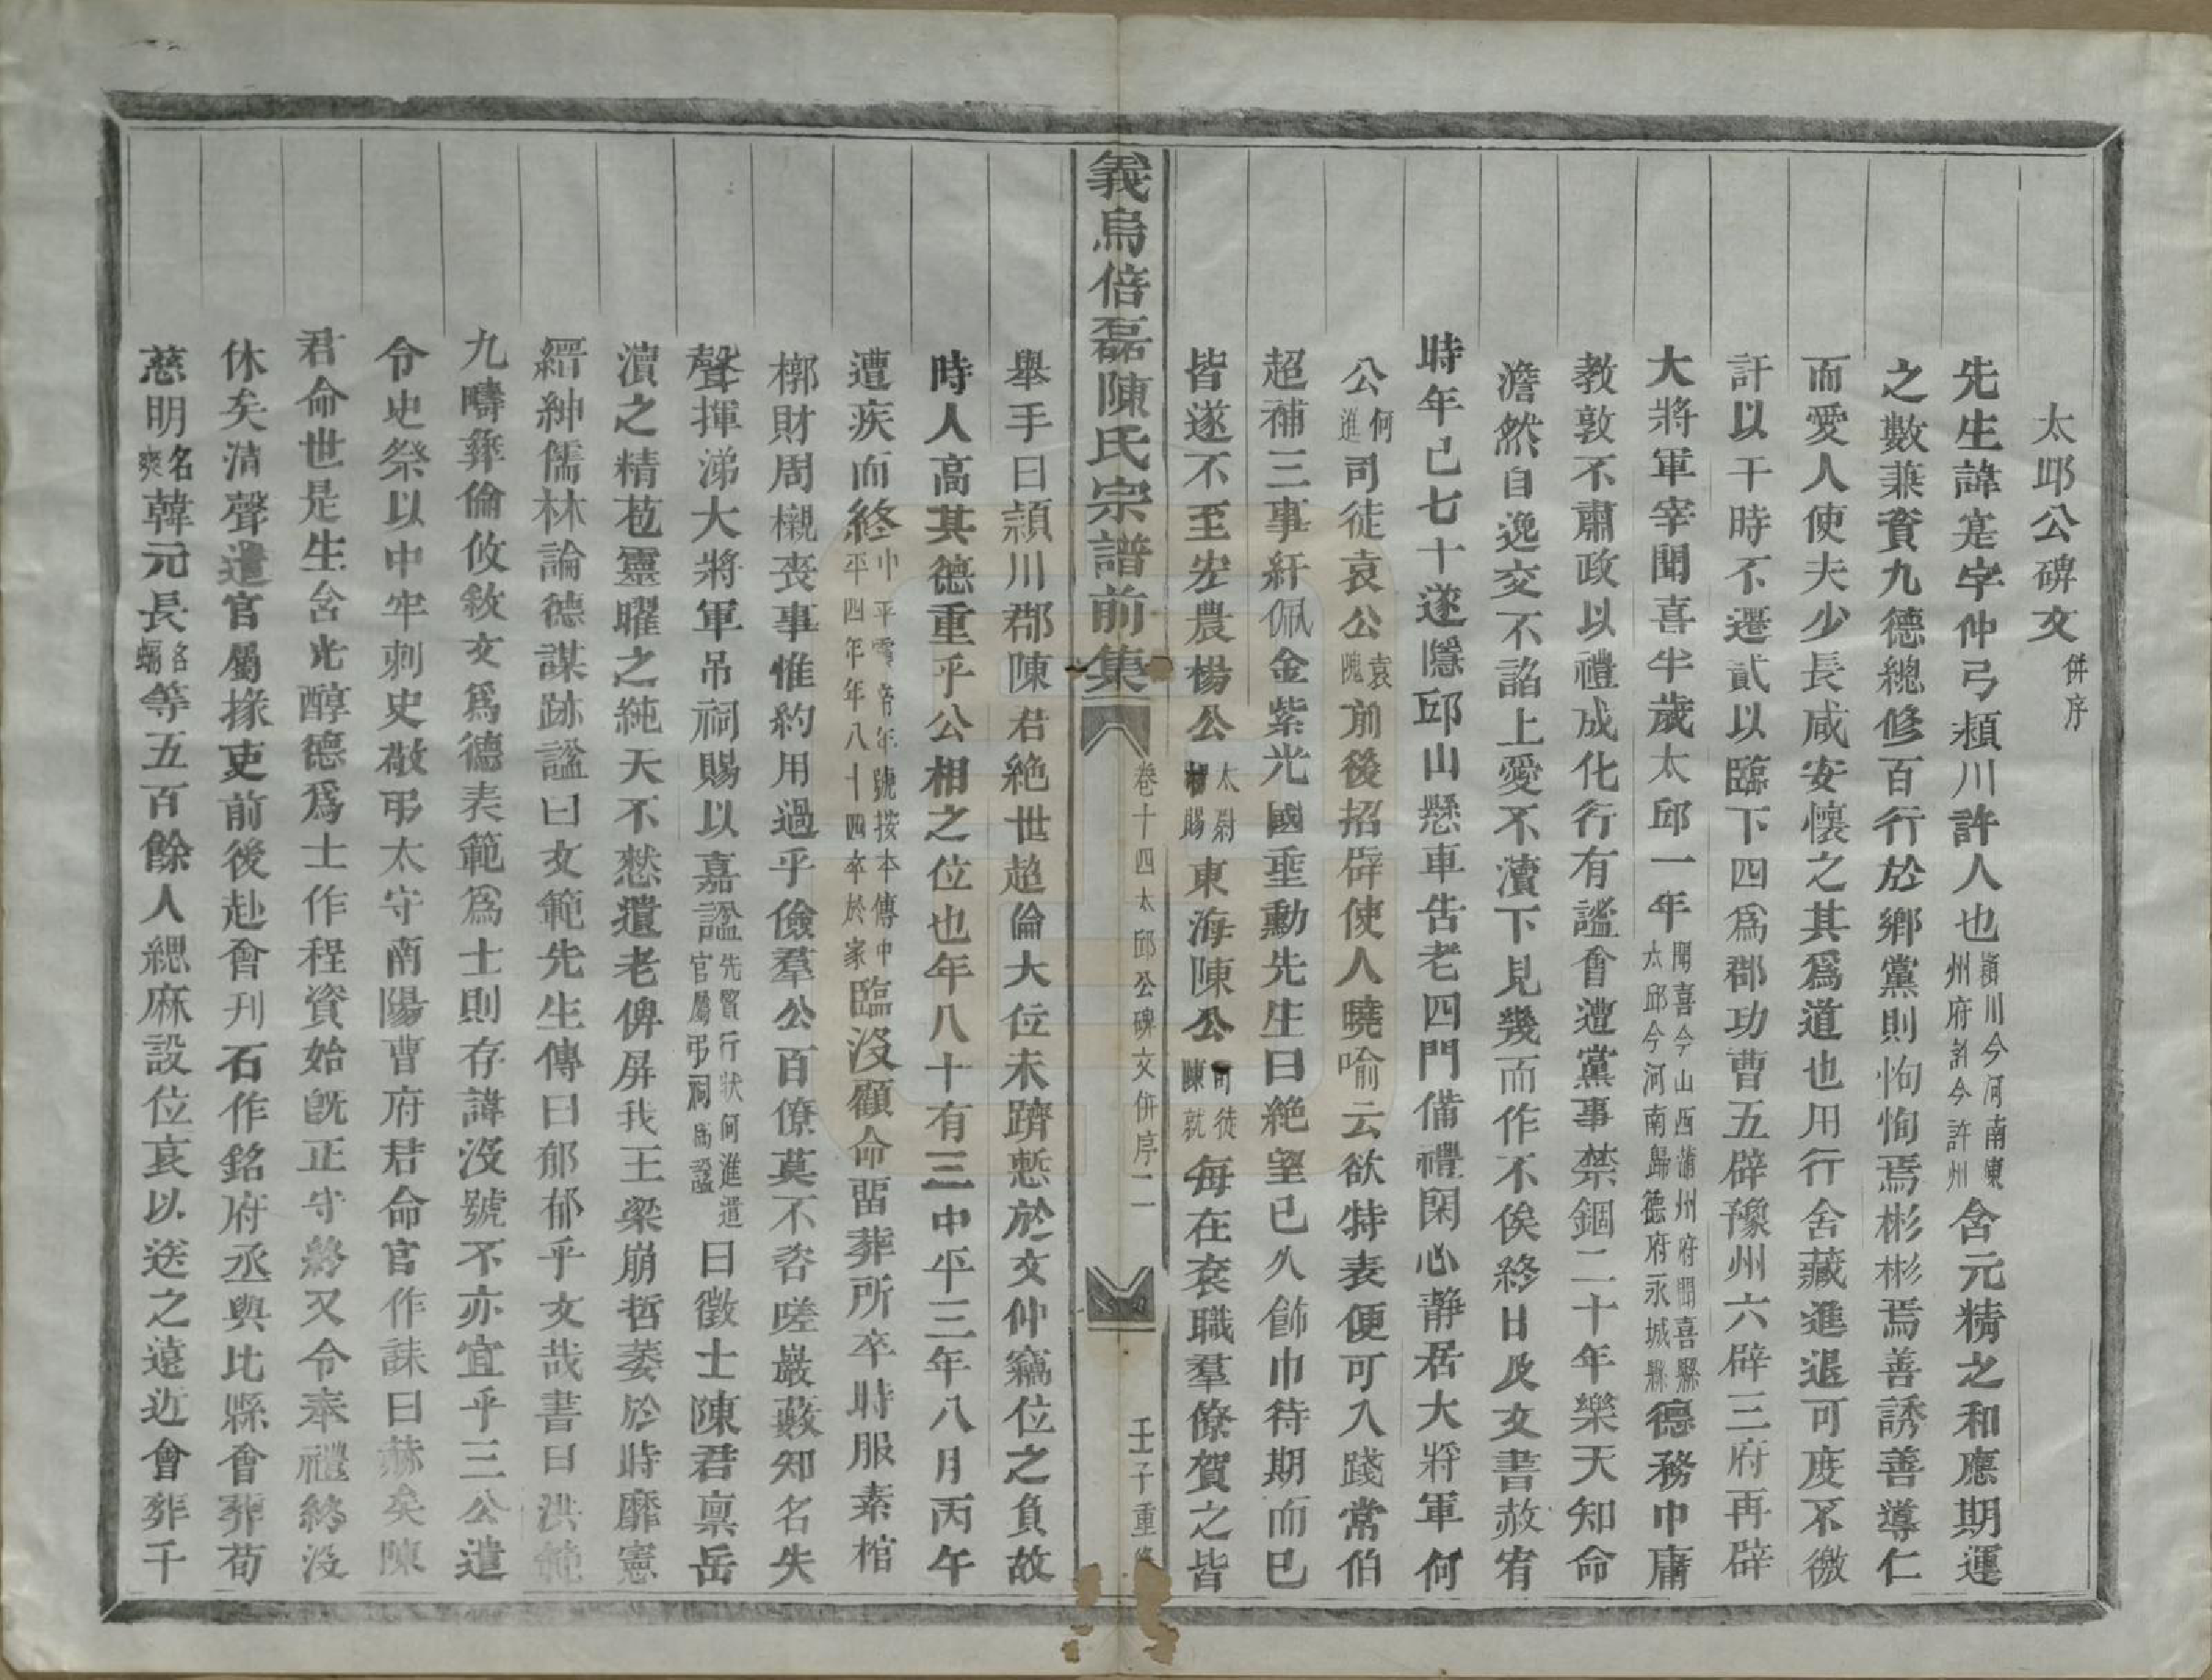 太邱公碑文 併序
先生諱寔字仲弓潁川許人也 潁川今河南東州府許今許州 含元精之和應期運
之數兼資九德總修百行於鄉黨則恂恂焉彬彬焉善誘善導仁
而愛人使夫少長咸安懷之其爲道也用行舍藏進退可度不徼
訐以干時不遷貳以臨下四爲郡功曹五辟豫州六辟三府再辟
大將軍宰聞喜半歲太邱一年 聞喜今山西蒲州府聞喜縣太邱今河南歸德府永城縣 德務中庸
教敦不肅政以禮成化行有謐會遭黨事禁錮二十年樂天知命
澹然自逸交不諂上愛不瀆下見幾而作不俟終日及文書赦宥
時年已七十遂隱邱山懸車告老四門備禮閑心靜居大將軍何
公 何進 司徒袁公 袁隗 前後招辟使人曉喻云欲特表便可入踐常伯
超補三事紆佩金紫光國垂勳先生曰絶望已久飾巾待期而已
皆遂不至宏農楊公 太尉楊賜 東海陳公 司徒陳就 每在袞職羣僚賀之皆
義烏倍磊陳氏宗譜前集
卷十四太邱公碑文併序二
壬子重修
舉手曰潁川郡陳君絶世超倫大位未躋慙於文仲竊位之負故
時人高其德重乎公相之位也年八十有三中平三年八月丙午
遭疾而終 中平靈帝年號按本傳中平四年年八十四卒於家 臨沒顧命畱葬所卒時服素棺
槨財周櫬喪事惟約用過乎儉羣公百僚莫不咨嗟巖藪知名失
聲揮涕大將軍吊祠賜以嘉諡 先賢行狀何進遣官屬弔祠爲諡 曰徵士陳君禀岳
瀆之精苞靈曜之純天不憖遺老俾屏我王梁崩哲萎於時靡憲
縉紳儒林論德謀跡諡曰文範先生傳曰郁郁乎文哉書曰洪範
九疇彝倫攸敘文爲德表範爲士則存誨沒號不亦宜乎三公遣
令史祭以中牢刺史敬弔太守南陽曹府君命官作誄曰赫矣陳
君命世是生含光醇德爲士作程資始旣正守終又令奉禮終沒
休矣淸聲遣官屬掾吏前後赴會刊石作銘府丞與比縣會葬荀
慈明 名爽 韓元長 等五百餘人緦麻設位哀以送之遠近會葬千